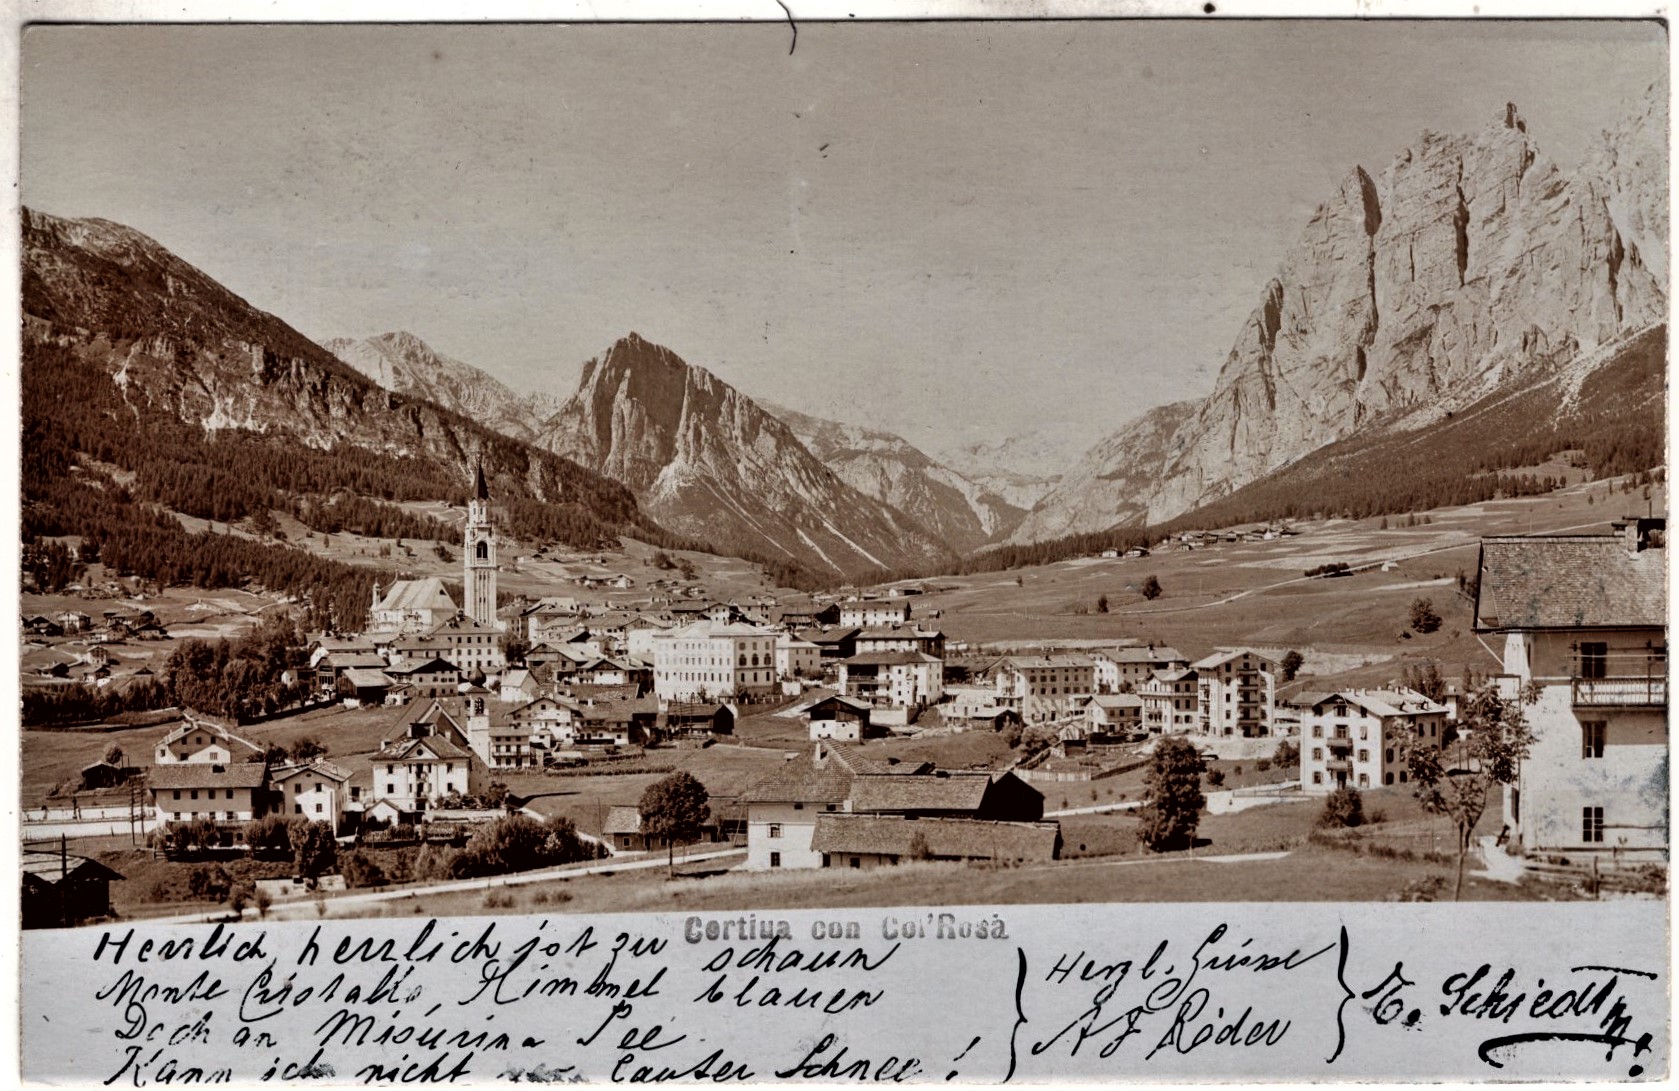 Cortina con Col'Rosà
Herrlich, herrlich ist zu schaun
Monte Cristallo, Himmel blauen
Doch an Misurina See
Kann ich nicht vor lauter Schnee!
Herzl. Grüsse
A F Röder